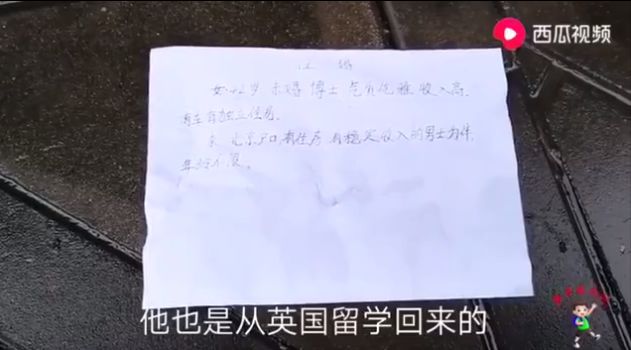 西瓜视频
征 婚
女 42岁 未婚 博士 气质优雅 收入高
有独立住房。
求 北京户口,有住房 有稳定收入的男士为伴
年龄不限。
他也是从英国留学回来的